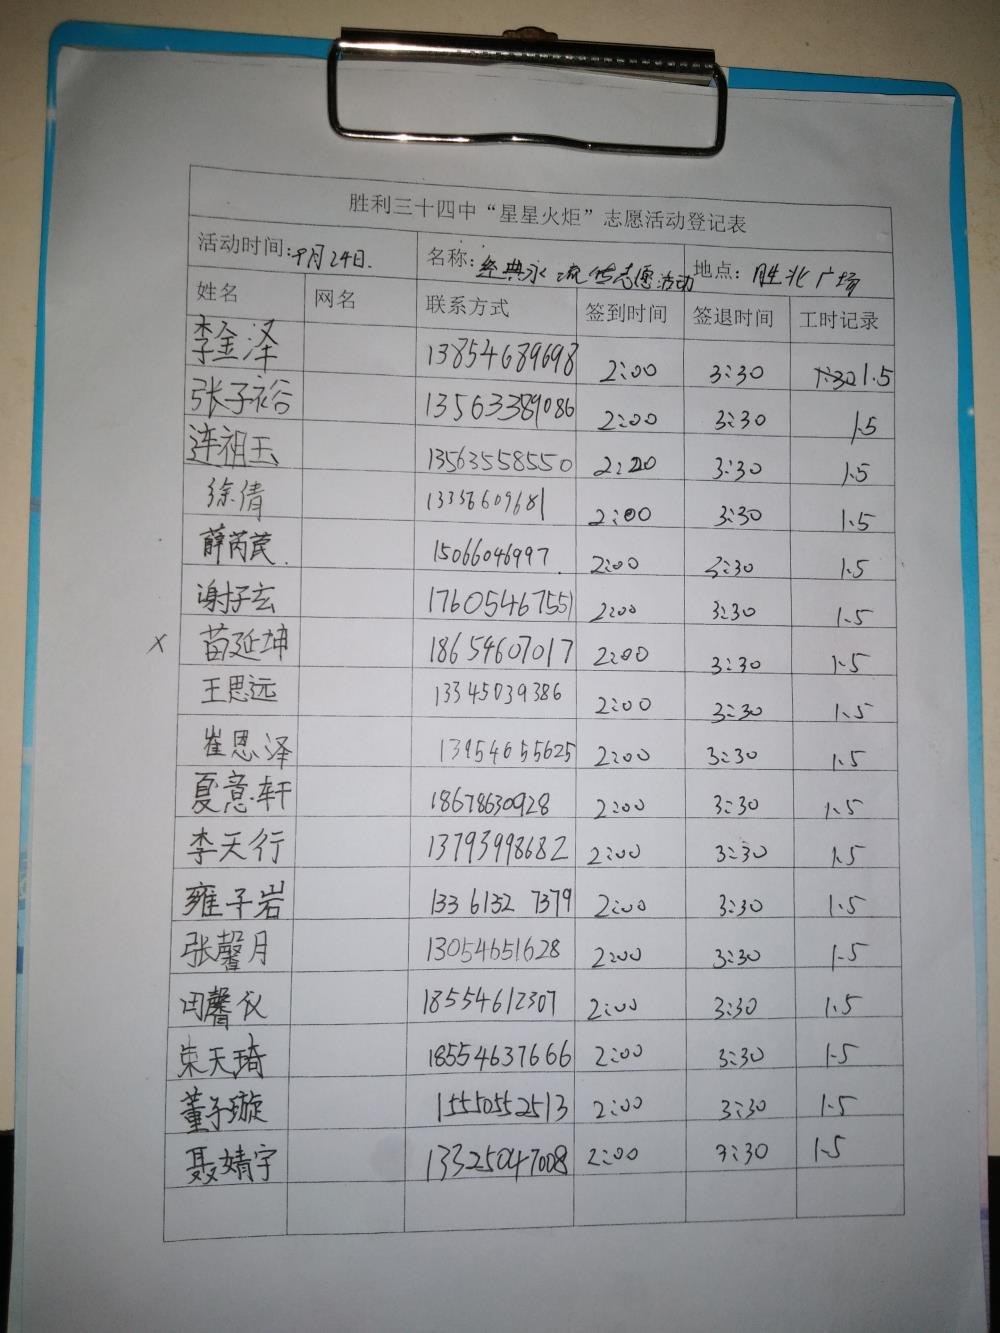 胜利三十四中“星星火炬”志愿活动登记表
活动时间:9月24日. 名称:经典永流传志愿活动 地点:胜北广场
姓名 网名 联系方式 签到时间 签退时间 工时记录
李金泽 13854689698 2:00 3:30 1.5
张子裕 13563389086 2:00 3:30 1.5
连祖玉 13563558550 2:20 3:30 1.5
徐倩 13356609681 2:00 3:30 1.5
薛芮芪. 15066046997. 2:00 3:30 1.5
谢子玄 17605467551 2:00 3:30 1.5
x 苗延坤 18654607017 2:00 3:30 1.5
王思远 13345039386 2:00 3:30 1.5
崔恩泽 13954655625 2:00 3:30 1.5
夏意轩 18678630928 2:00 3:30 1.5
李天行 13793998682 2:00 3:30 1.5
雍子岩 133 6132 7379 2:00 3:30 1.5
张馨月 13054651628 2:00 3:30 1.5
田馨仪 18554612307 2:00 3:30 1.5
宋天琦 18554637666 2:00 3:30 1.5
董子璇 15550552513 2:00 3:30 1.5
聂婧宇 13325047008 2:00 3:30 1.5